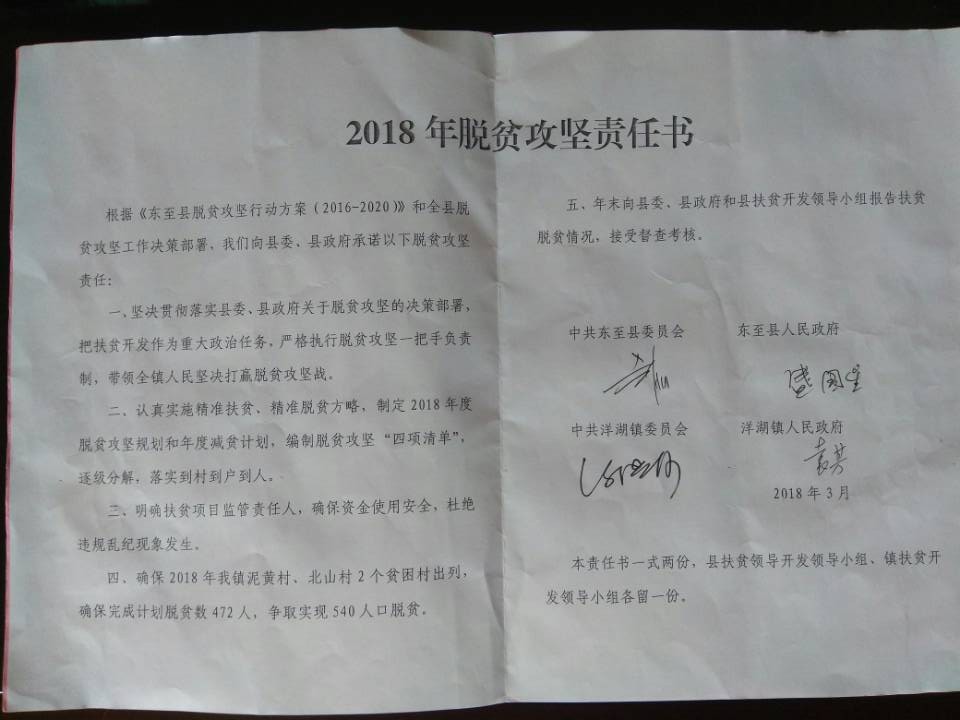 2018 年脱贫攻坚责任书
根据《东至县脱贫攻坚行动方案(2016-2020)》和全县脱
贫攻坚工作决策部署，我们向县委、县政府承诺以下脱贫攻坚
责任：
一、坚决贯彻落实县委、县政府关于脱贫攻坚的决策部署，
把扶贫开发作为重大政治任务，严格执行脱贫攻坚一把手负责
制，带领全镇人民坚决打赢脱贫攻坚战。
二、认真实施精准扶贫、精准脱贫方略，制定 2018 年度
脱贫攻坚规划和年度减贫计划，编制脱贫攻坚“四项清单”，
逐级分解，落实到村到户到人。
三、明确扶贫项目监管责任人，确保资金使用安全，杜绝
违规乱纪现象发生。
四、确保 2018 年我镇泥黄村、北山村 2 个贫困村出列，
确保完成计划脱贫数 472 人，争取实现 540 人口脱贫。
五、年末向县委、县政府和县扶贫开发领导小组报告扶贫
脱贫情况，接受督查考核。
中共东至县委员会 东至县人民政府
盛国星
中共洋湖镇委员会 洋湖镇人民政府
袁芸
2018 年 3 月
本责任书一式两份，县扶贫领导开发领导小组、镇扶贫开
发领导小组各留一份。